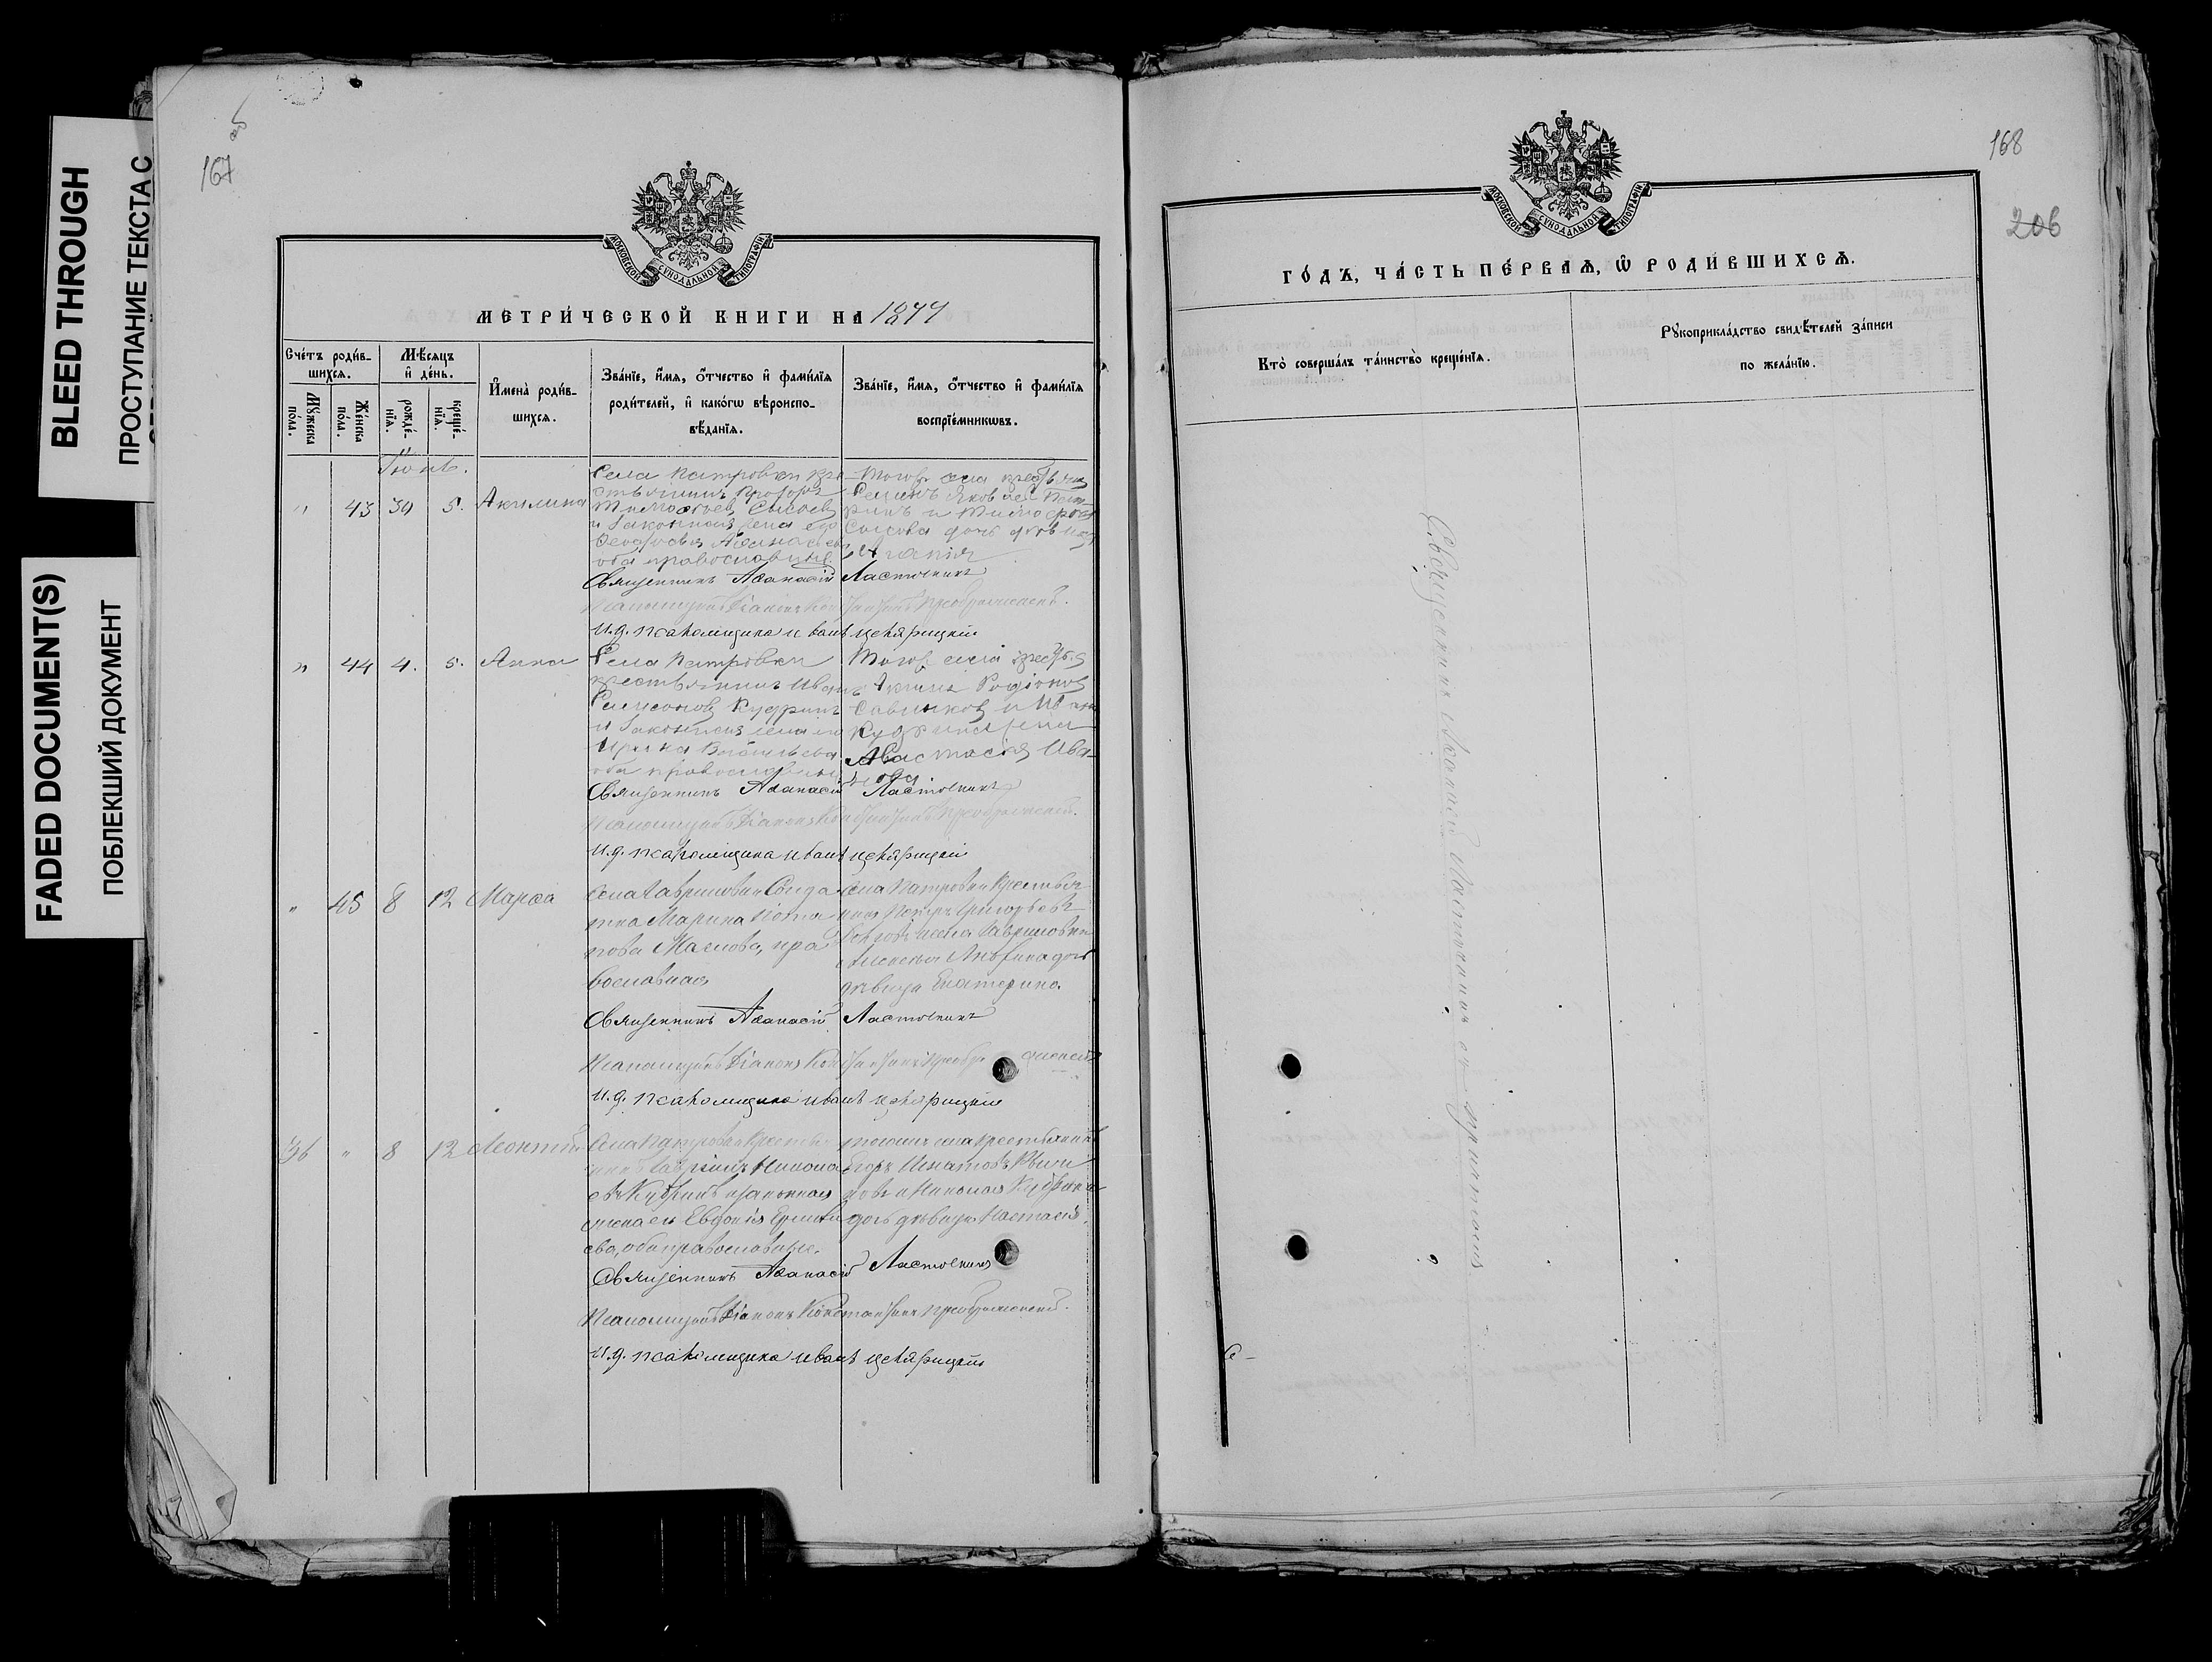 BLEED THROUGH
ПРОСТУПАНИЕ ТЕКСТА С
FADED DOCUMENT(S)
ПОБЛЕКШИЙ ДОКУМЕНТ
об
167
МОСКОВСКОЙ СУНОДАЛЬНОЙ ТИПОГРАФІИ
МЕТРИ́ЧЕСКОЙ КНИГИ НА 1877
Сче́тъ роди́в-
шихсѧ.
Мѣ́сѧцъ
и҆ де́нь.
И҆мена̀ роди́в-
шихсѧ.
Зва́нїе, и҆́мѧ, ѻ҆́тчество и҆ фами́лїѧ
роди́телей, и҆ како́гѡ вѣроиспо-
вѣ́данїѧ.
Зва́нїе, и҆́мѧ, ѻ҆́тчество и҆ фами́лїѧ
воспрїе́мникѡвъ.
Мꙋ́жеска
по́ла.
Же́нска
по́ла.
рожде́-
нїѧ.
креще́-
нїѧ.
Іюнь.
" 43 30 5. Акилина
Села Патровки кре-
стьянинъ Прохоръ
Тимофеев Сысоев
и законная жена его
Феодосья Афанасьев
оба православные
Того же села крестьянин
Семенъ Яковлев
и Тимофея
Сысоева дочь девица
Священникъ Аѳанасій Ласточкинъ
Псаломщикъ Діаконъ Константинъ Преображенскій.
И. д. псаломщика Иванъ Цекярицкій
" 44 4. 5. Анна
Села Патровки
крестьянинъ Иванъ
Самсонов Кудринъ
и законная жена его
Ирина Васильева
оба православны
Того же села крестьян
Родионов
Савинков и Иван
Кудрина жена
Анастасія Ива-
нова
Священникъ Аѳанасій Ласточкинъ
Псаломщикъ Діаконъ Константинъ Преображенскій.
И. д. псаломщика Иванъ Цекярицкій
" 45 8 12 Марѳа
Села Гавриловки Солда
тка Марина Пота
пова Маслова, пра
вославная
Села Патровки Крестья
нинъ Петръ Григорьевъ
села Гавриловки
дочь
девица Екатерина.
Священникъ Аѳанасій Ласточкинъ
Псаломщикъ Діаконъ Константинъ Преображенскій
И. д. псаломщика Иванъ Цекярицкій
36 " 8 12 Леонтій
Села Патровки Крестья
нинъ Гавріилъ Никола
евъ Кудринъ и законная
жена его Евфимія
ева, оба православные.
тогоже села Крестьянинъ
Егоръ Игнатовъ
и Николая Кудрина
дочь девица Настасія.
Священникъ Аѳанасій Ласточкинъ
Псаломщикъ Діаконъ Константинъ Преображенскій.
И. д. псаломщика Иванъ Цекярицкій
168
206
МОСКОВСКОЙ СУНОДАЛЬНОЙ ТИПОГРАФІИ
ГО́ДЪ, ЧА́СТЬ ПЕ́РВАѦ, Ѽ РОДИ́ВШИХСѦ.
Кто̀ соверша́лъ та́инство креще́нїѧ.
Рꙋкоприкла́дство свидѣ́телей за́писи
по жела́нїю.
Священникъ Аѳанасій Ласточкинъ съ причтомъ